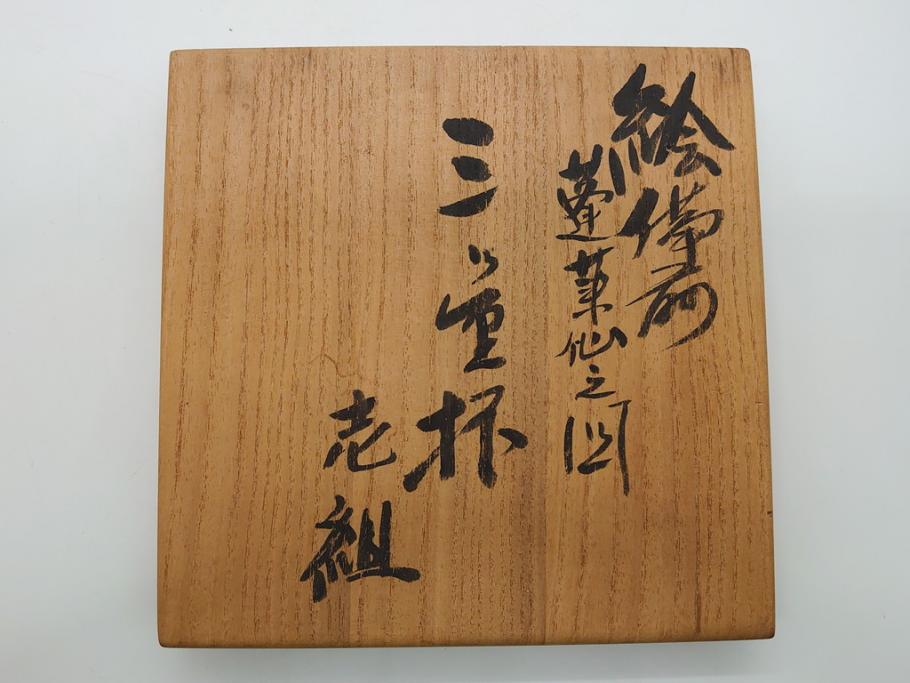 絵備前
蓬莱仙之図
三ッ重杯
壱組